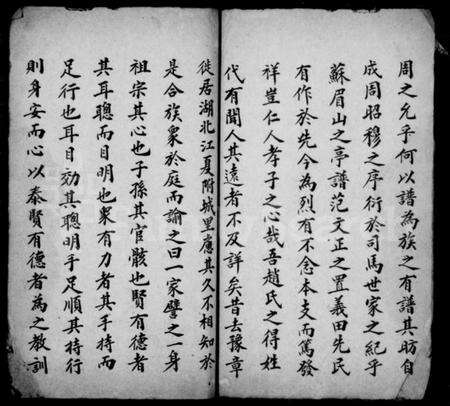 周之允乎何以譜為族之有譜其昉自
成周昭穆之序衍於司馬世家之紀乎
蘇眉山之亭譜范文正之置義田先民
有作於先今為烈有不念本支而篤發
祥豈仁人孝子之心哉吾趙氏之得姓
代有聞人其遠者不及詳矣昔去豫章
徙居湖北江夏附城里應其久不相知於
是合族衆於庭而諭之曰一家譬之一身
祖宗其心也子孫其官骸也賢有德者
其耳聰而目明也衆有力者其手持而
足行也耳目効其聰明手足順其持行
則身安而心以泰賢有德者為之教訓